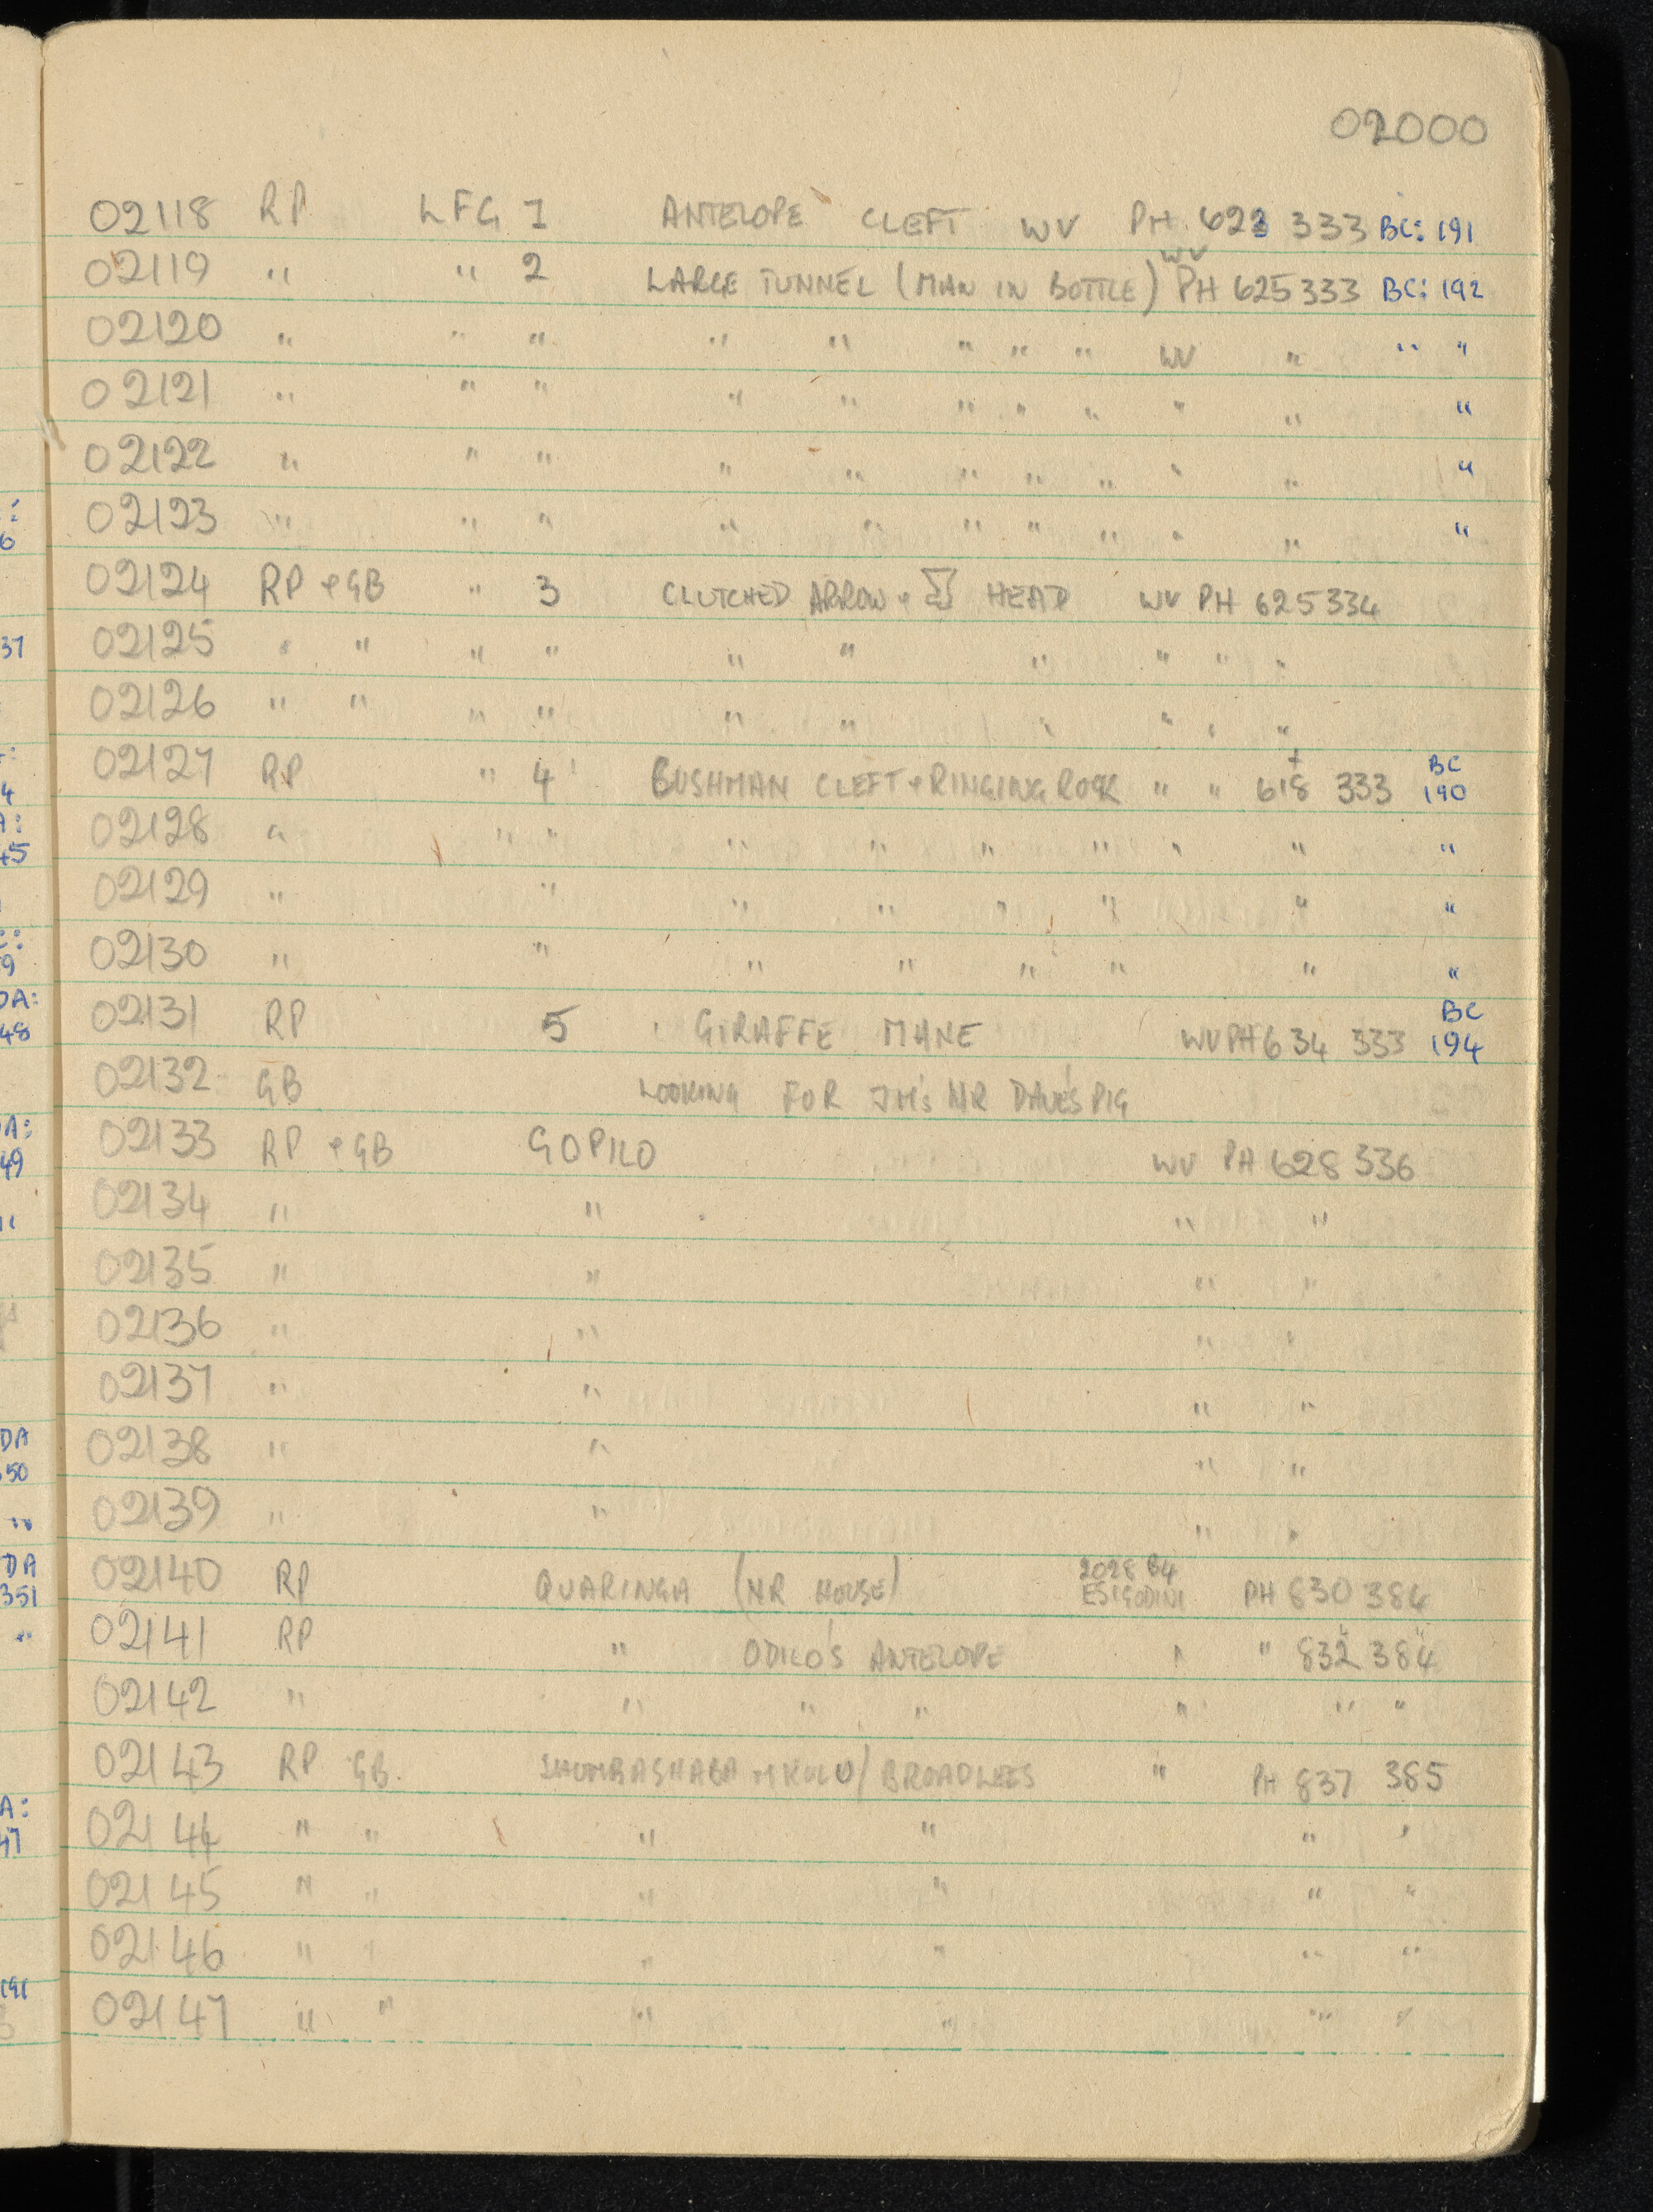 02000
02118 RP LFG 1 ANTELOPE CLEFT WV PH 623 333 BC: 191
02119 " " 2 LARGE TUNNEL (MAN IN BOTTLE) WV PH 625 333 BC: 192
02120 " " " " " " " " WV " " "
02121 " " " " " " " " " " "
02122 " " " " " " " " " " "
02123 " " " " " " " " " " "
02124 RP + GB " 3 CLUTCHED ARROW + HEAD WV PH 625 334
02125 " " " " " " " " " "
02126 " " " " " " " " " "
02127 RP " 4 BUSHMAN CLEFT + RINGING ROCK " " 618 333 BC 190
02128 " " " " " " " " " "
02129 " " " " " " " "
02130 " " " " " " " "
02131 RP 5 GIRAFFE MANE WV PH 634 333 BC 194
02132 GB LOOKING FOR JH's NR DAVE'S PIG
02133 RP + GB GOPILO WV PH 628 336
02134 " " " "
02135 " " " "
02136 " " " "
02137 " " " "
02138 " " " "
02139 " " " "
02140 RP QUARINGA (NR HOUSE) 2028 B4 ESIGODINI PH 830 384
02141 RP " ODILO'S ANTELOPE " " 832 384
02142 " " " " " " "
02143 RP GB SHUMBASHABA MKULU / BROADLEES " PH 837 385
02144 " " " " " "
02145 " " " " " "
02146 " " " " " "
02147 " " " " " "